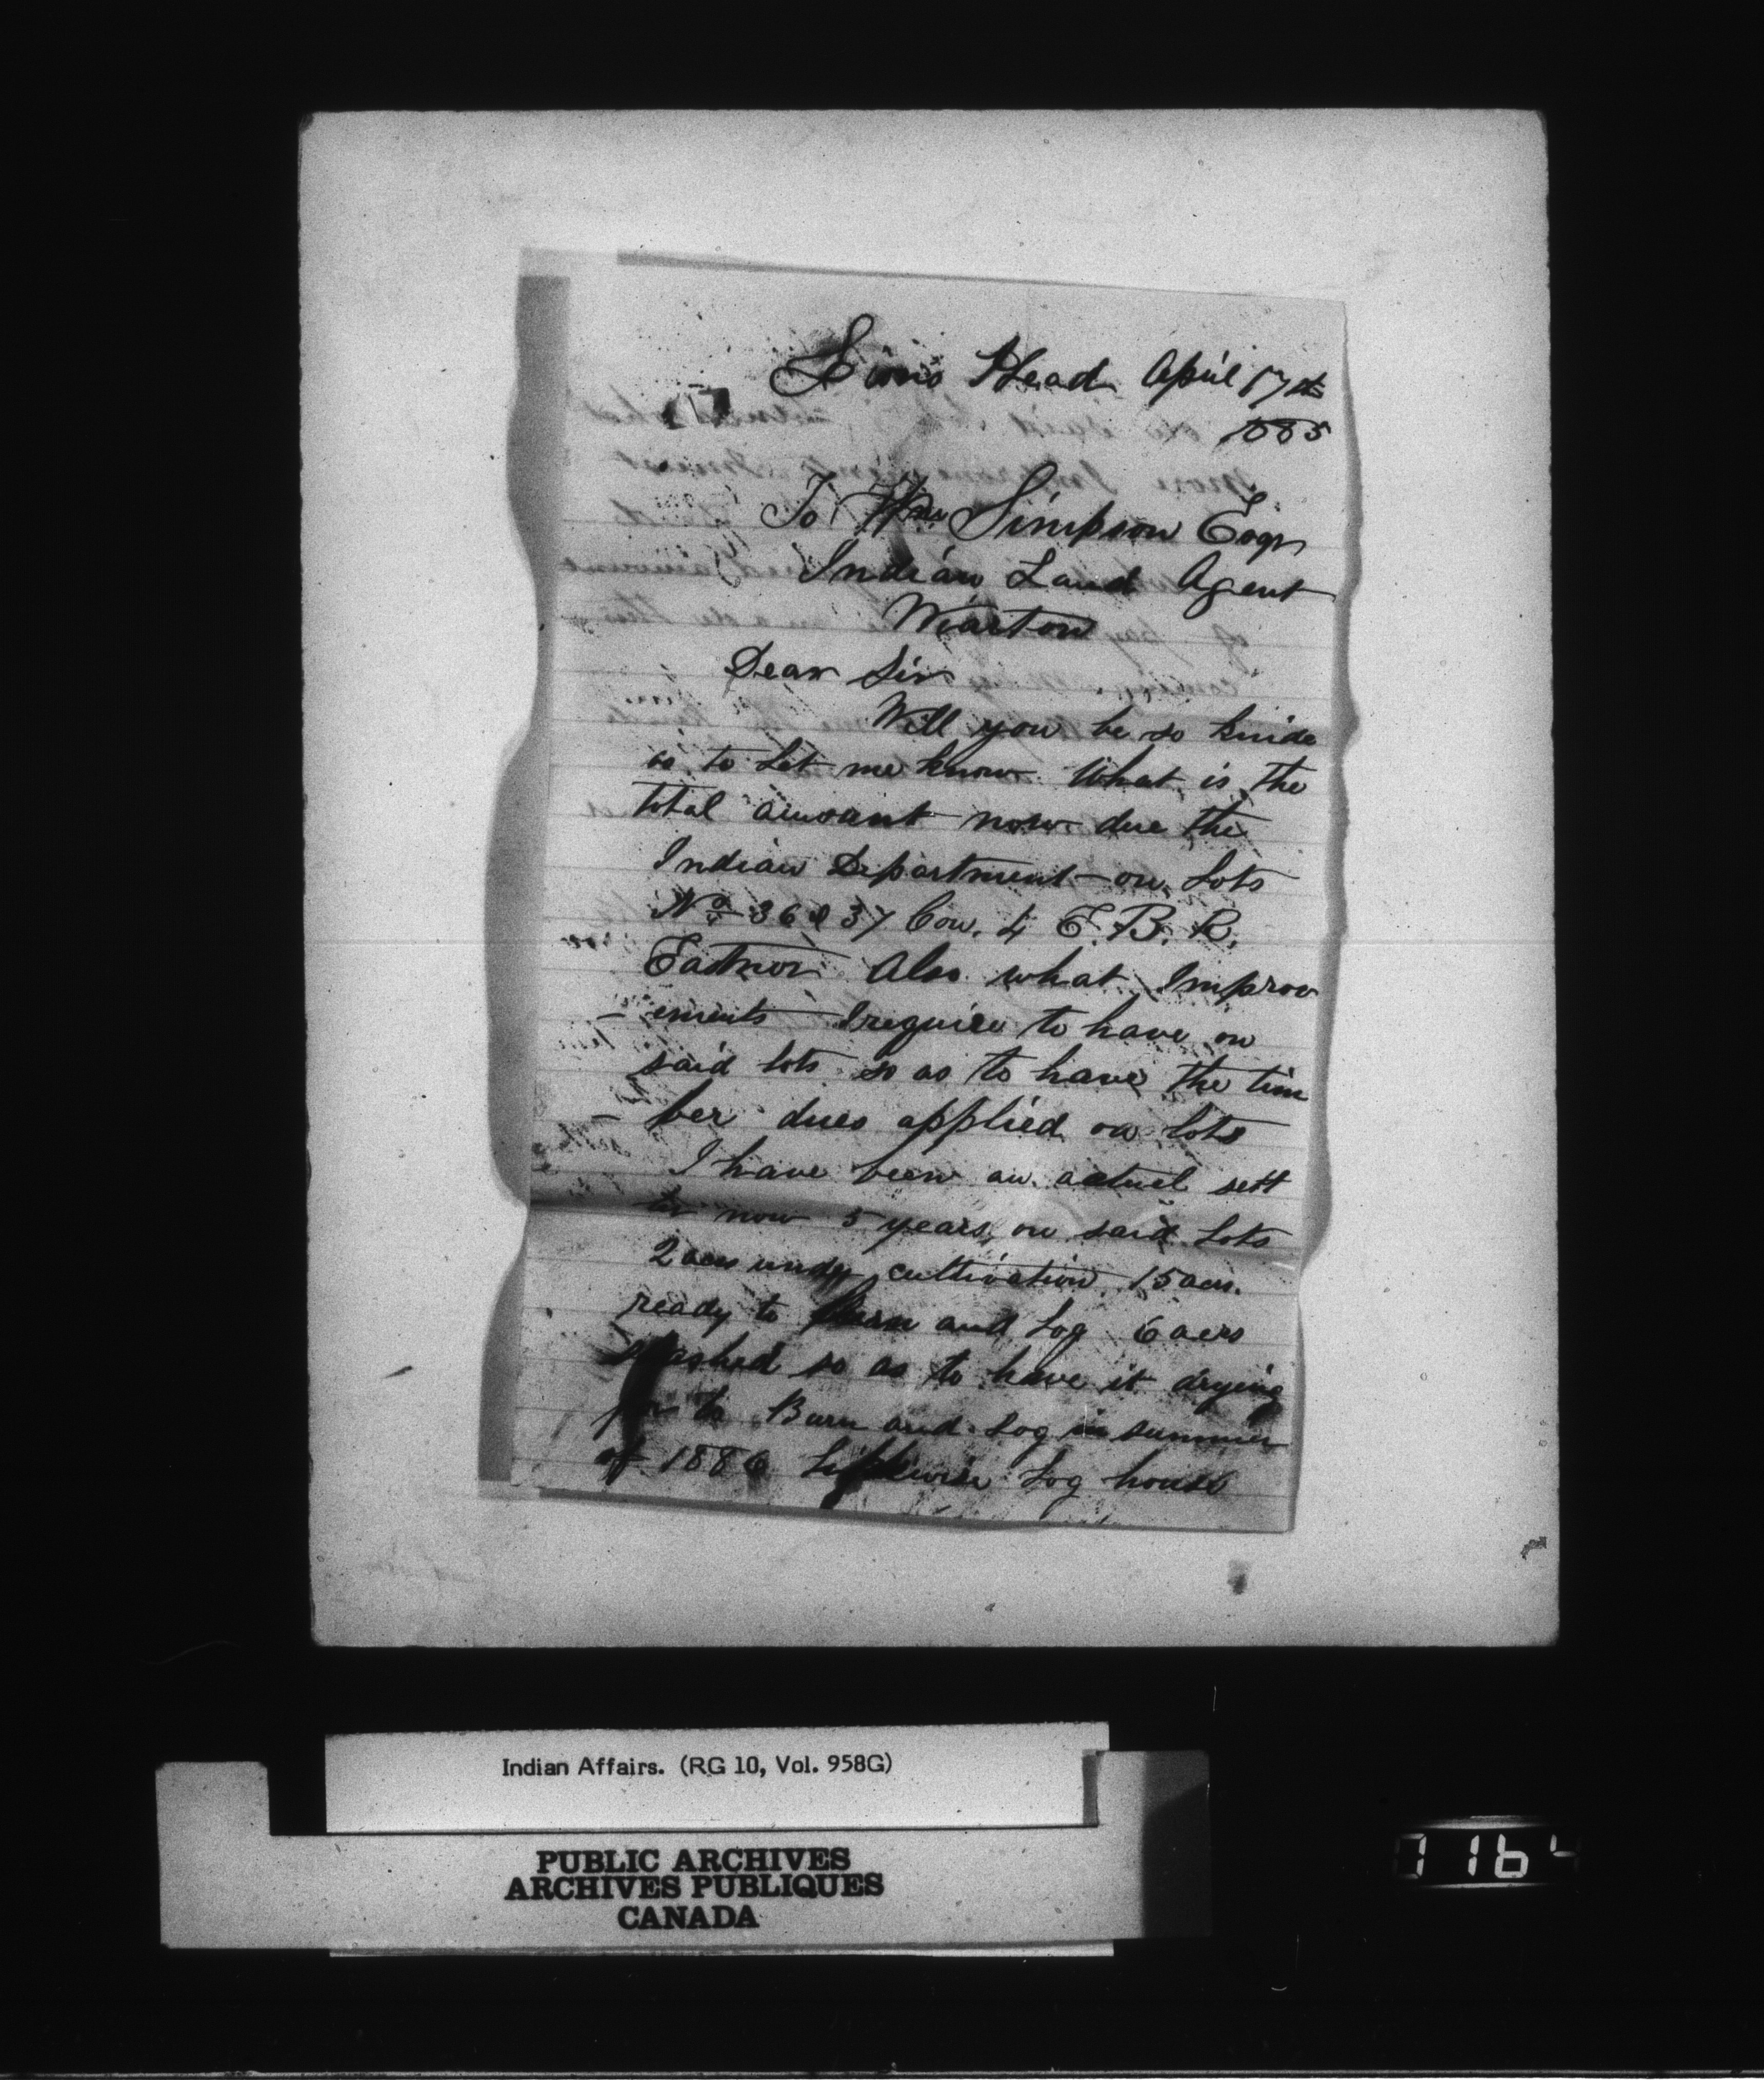 Lions Head April 17th
1885
To Wm Simpson Esqr
Indian Land Agent
Wiarton
Dear Sir
Will you be so kinde
as to Let me know What is the
total amount now due the
Indian Department on Lots
No 36 & 37 Con. 4 E. B. R.
Eastnor Also what Improv
- ements I require to have on
said lots so as to have the tim
- ber dues applied on lots
I have been an actuel sett
ler now 5 years on said Lots
2 acrs under cultivation 15 acrs.
ready to Burn and Log 6 acrs
slashed so as to have it drying
for to Burn and Log in summer
of 1886 Likewise Log house
Indian Affairs. (RG 10, Vol. 958G)
PUBLIC ARCHIVES
ARCHIVES PUBLIQUES
CANADA